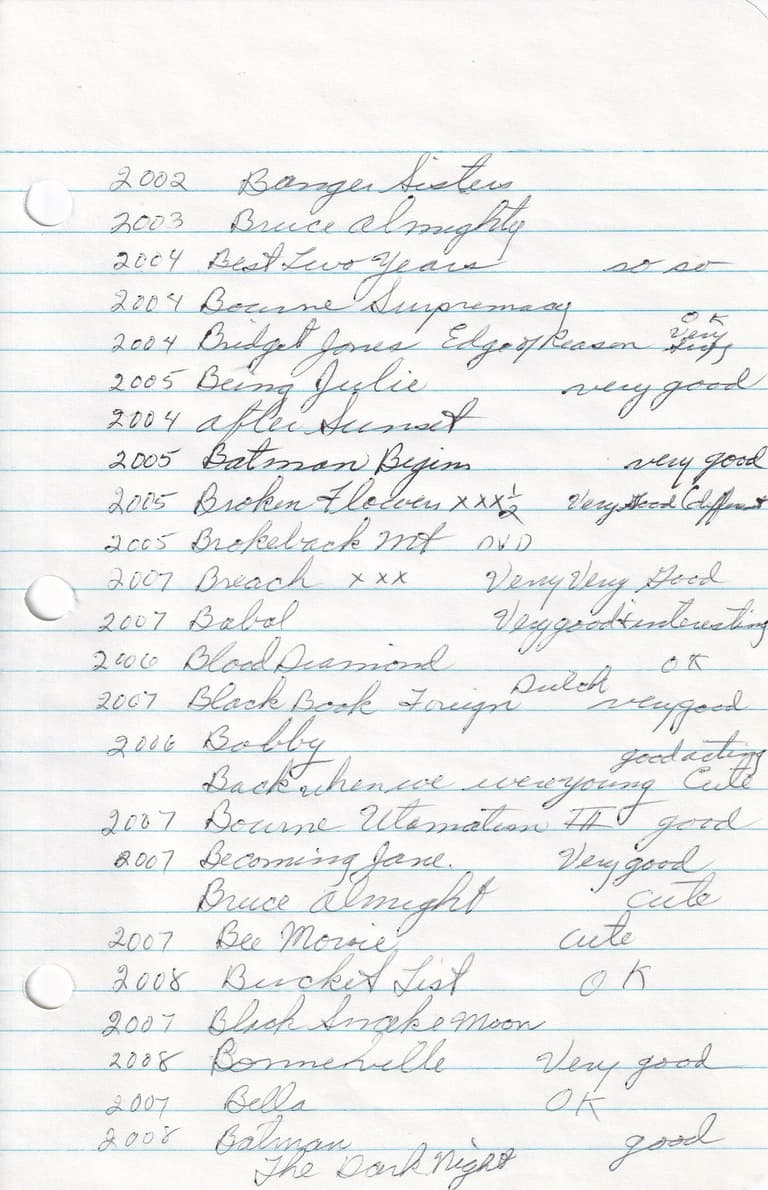 2002 Banger Sisters
2003 Bruce Almighty
2004 Best Two Years so so
2004 Bourne Surpremacy
OK
2004 Bridget Jones Edge of Reason Very
2005 Being Julie very good
2004 After Sunset
2005 Batman Begins very good
2005 Broken Flowers xxx½ Very Good (different
2005 Brokeback Mt DVD
2007 Breach xxx Very Very Good
2007 Babal Very good + interesting
2006 Blood Diamond OK
2007 Black Book Foreign Dutch very good
2006 Bobby good acting
Back when we were young Cute
2007 Bourne Utamatum III good
2007 Becoming Jane. Very good
Bruce Almight cute
2007 Bee Movie cute
2008 Bucket List OK
2007 Black Snake Moon
2008 Bonneville Very good
2007 Bella OK
2008 Batman good
The Dark Night